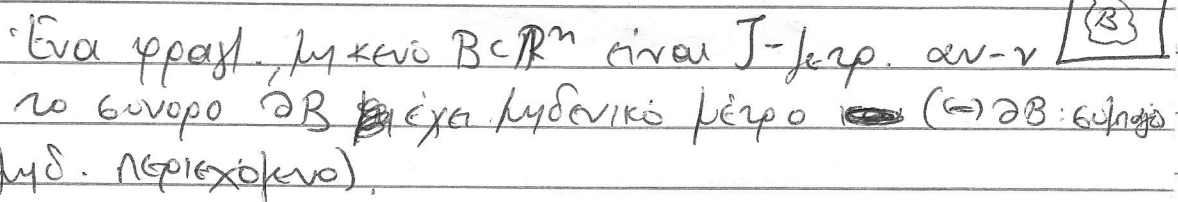 Ένα φραγ., μη κενό B⊂ℝⁿ είναι J-μετρ. αν-ν B
το σύνορο ∂B έχει μηδενικό μέτρο (⇔ ∂B: συμπαγο
μηδ. περιεχόμενο).